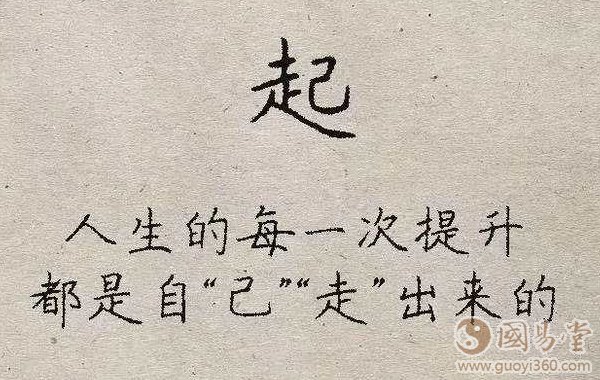 起
人生的每一次提升
都是自“己”“走”出来的
國易堂
www.guoyi360.com